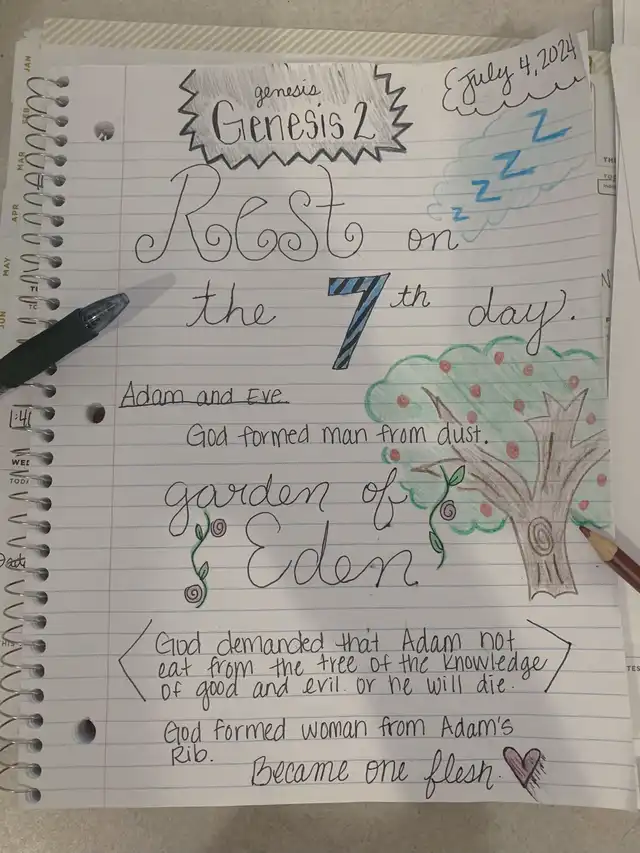 July 4, 2024
genesis
Genesis 2
Z
Z
Z
Z
Rest on
the 7th day.
Adam and Eve
God formed man from dust.
garden of
Eden
God demanded that Adam not
eat from the tree of the knowledge
of good and evil or he will die.
God formed woman from Adam's
Rib.
Became one flesh.
JAN
FEB
MAR
APR
MAY
JUN
WED